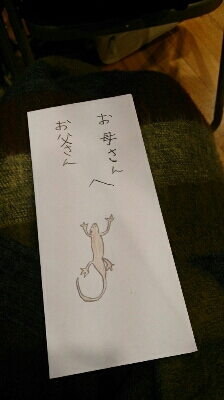 お母さんへ
お父さん